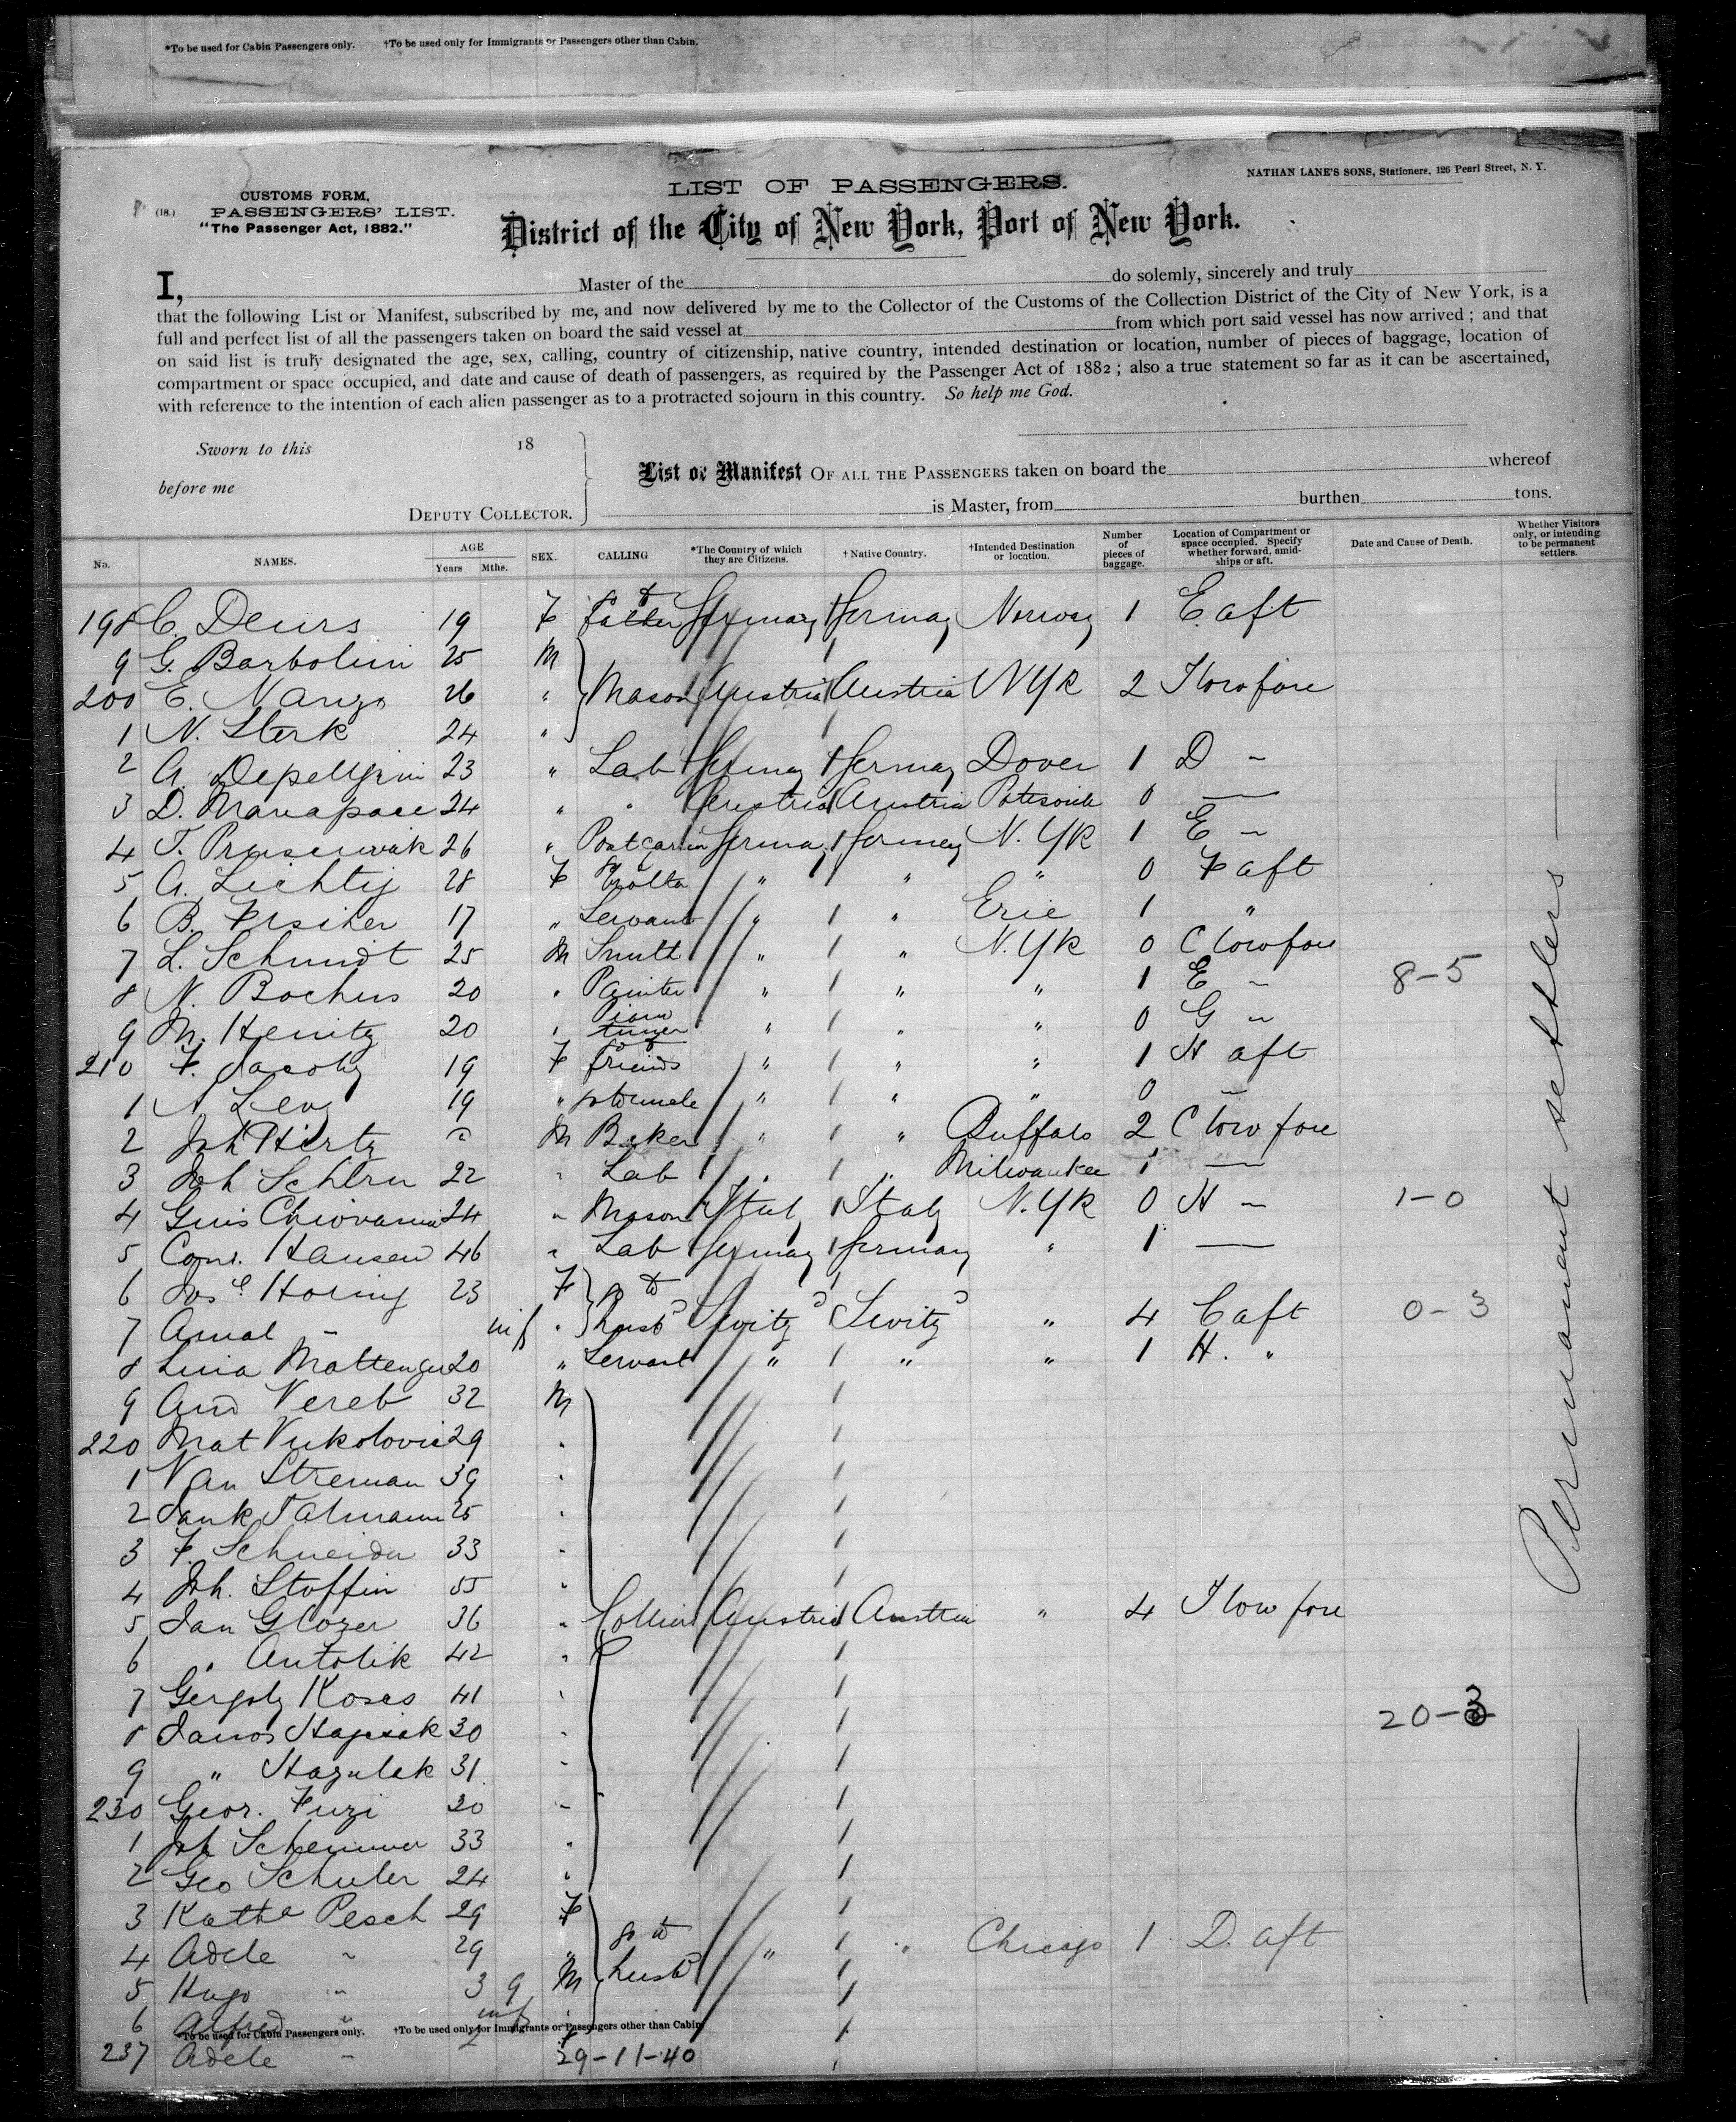 *To be used for Cabin Passengers only. †To be used only for Immigrants or Passengers other than Cabin.
NATHAN LANE'S SONS, Stationers, 126 Pearl Street, N. Y.
CUSTOMS FORM,
(18.) PASSENGERS' LIST.
"The Passenger Act, 1882."
LIST OF PASSENGERS.
District of the City of New York, Port of New York.
I, Master of the do solemly, sincerely and truly
that the following List or Manifest, subscribed by me, and now delivered by me to the Collector of the Customs of the Collection District of the City of New York, is a
full and perfect list of all the passengers taken on board the said vessel at from which port said vessel has now arrived ; and that
on said list is truly designated the age, sex, calling, country of citizenship, native country, intended destination or location, number of pieces of baggage, location of
compartment or space occupied, and date and cause of death of passengers, as required by the Passenger Act of 1882 ; also a true statement so far as it can be ascertained,
with reference to the intention of each alien passenger as to a protracted sojourn in this country. So help me God.
Sworn to this 18
before me
DEPUTY COLLECTOR.
List or Manifest OF ALL THE PASSENGERS taken on board the whereof
is Master, from burthen tons.
No. NAMES. AGE Years Mths. SEX. CALLING *The Country of which they are Citizens. † Native Country. †Intended Destination or location. Number of pieces of baggage. Location of Compartment or space occupied. Specify whether forward, amidships or aft. Date and Cause of Death. Whether Visitors only, or intending to be permanent settlers.
198 C. Deurs 19 F Germany Germany Norway 1 E. aft
9 G. Barbolini 25 M
200 E. Nanzo 26 " Mason Austria Austria N Yk 2 I low fore
1 N. Sterk 24 "
2 A. Depellgrin 23 " Lab Germany Germany Dover 1 D "
3 D. Manapace 24 " " Austria Austria 0 —
4 T. 26 " Germany Germany N. Yk 1 E "
5 A. Lichtij 28 F " " " 0 F aft
6 B. 17 " Servant " " Erie 1 "
7 L. Schmidt 25 M Smith " " N. Yk 0 C low fore
8 N. Bochus 20 " Painter " " " 1 E " 8-5
9 M. Henitz 20 " " " " 0 G "
210 F. Jacoby 19 F to friends " " " 1 H aft
1 A Levy 19 " to uncle " " " 0 —
2 Joh Hertz M Baker " " Buffalo 2 C low fore
3 Joh 22 " Lab " " Milwaukee 1 —
4 Guis Chiovanni 24 " Mason Italy Italy N. Yk 0 H " 1-0
5 Conr. Hansen 46 " Lab Germany Germany " 1 —
6 Jose Horing 23 F
7 Amal " inf " to husbd Switzd Switzd " 4 C aft 0-3
8 Lina Mattenger 20 " Servant " " " 1 H. "
9 And Vereb 32 M
220 Mat Vukolovic 29 "
1 Van Streman 39 "
2 Jank Talmann 25 "
3 F. Schneider 33 "
4 Joh. Stoffin 55 "
5 Jan Glozer 36 " Collier Austria Austria " 4 I low fore
6 " Antolik 42 "
7 Gergoly Koses 41 "
8 Janos 30 " 20-3
9 " Hazulak 31 "
230 Geor. Fuzi 20 "
1 Joh 33 "
2 Geo Schuler 24 "
3 Kathe Pesch 29 F
4 Adele " 29 " go to husbd " " Chicago 1 D. aft
5 Hugo " 3 9 M
6 Alfred " inf "
*To be used for Cabin Passengers only. †To be used only for Immigrants or Passengers other than Cabin
237 Adele "
29-11-40
Permanent settlers